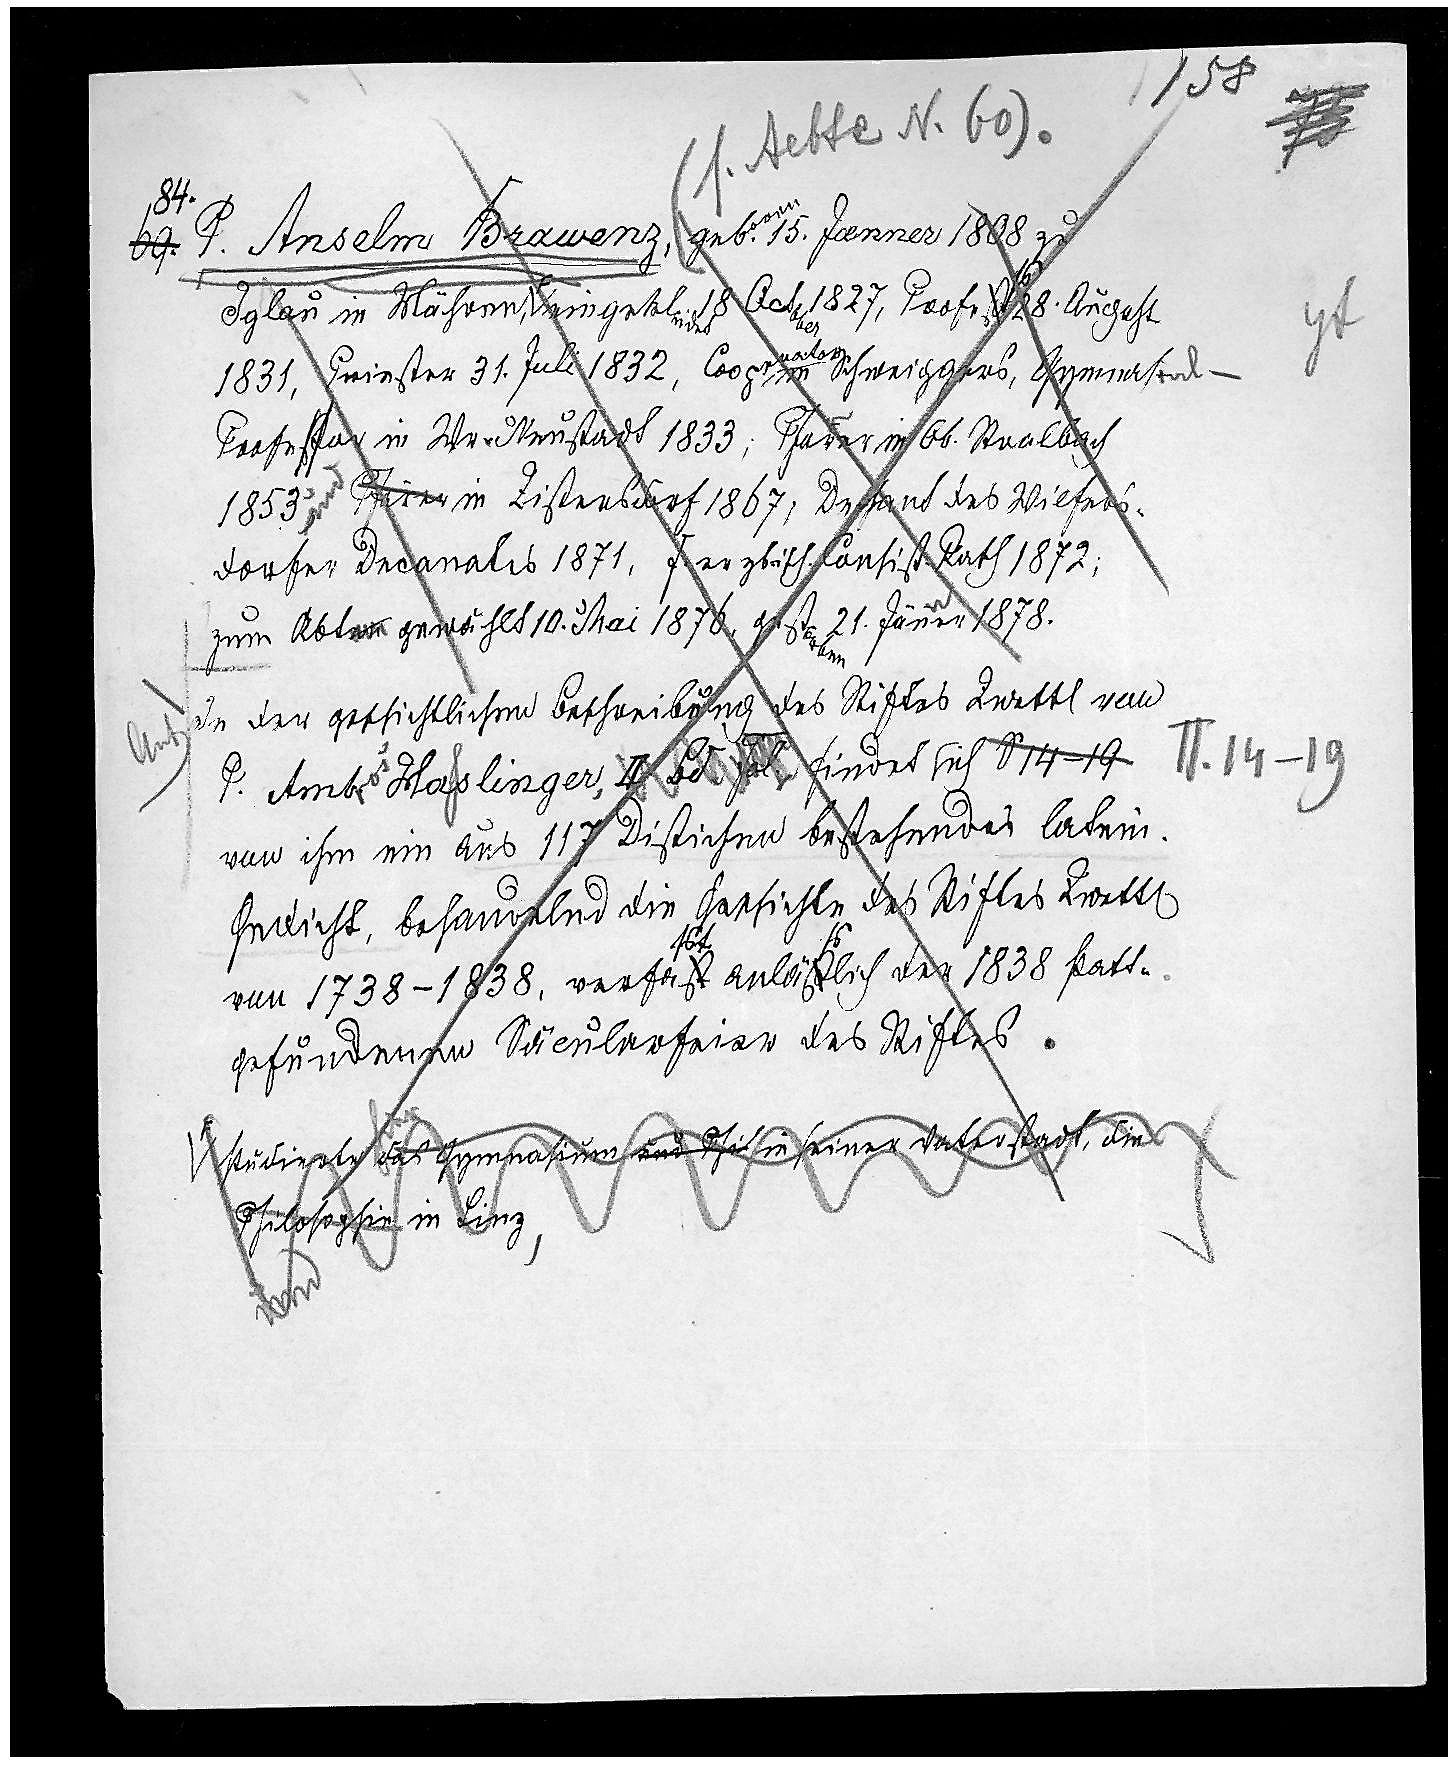 158
(s. Aebte N. 60).
84.
69. P. Anselm Brawenz, geboren 15. Jänner 1808 zu
Iglau in Mähren, eingekleidet 18 October 1827, Profeß 28. August
1831, Priester 31. Juli 1832, Cooperator in Schweiggers, Gymnasial-
Professor in Wr. Neustadt 1833; Pfarrer in Ob. Stralbach
1853 und Pfarrer in Zistersdorf 1867; Dechant des Wilfers-
dorfer Decanates 1871, f. erzbisch. Consist. Rath 1872;
zum Abten gewählt 10. Mai 1876, gestorben 21. Jänner 1878.
In der geschichtlichen Beschreibung des Stiftes Zwettl von
P. Ambros Haslinger, II Bd. fol. findet sich S 14-19 II. 14-19
von ihm ein aus 117 Distichen bestehendes latein.
Gedicht, behandelnd die Geschichte des Stiftes Zwettl
von 1738-1838, verfasst anläßlich der 1838 statt-
gefundenen Säcularfeier des Stiftes.
studierte das Gymnasium und Phil in seiner Vaterstadt, die
Philosophie in Linz,
und